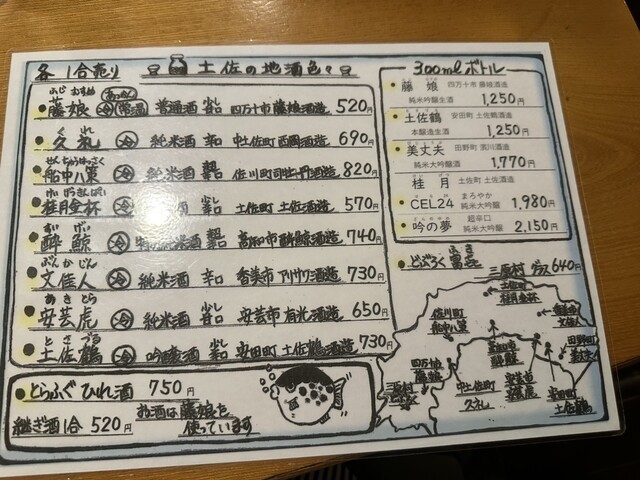 各1合売り 土佐の地酒色々
ふじ むすめ
藤娘 冷 常温 普通酒 四万十市 藤娘酒造 520円
くれ
久礼 冷 純米酒 辛口 中土佐町 西岡酒造 690円
せんちゅうはっさく
船中八策 冷 純米酒 佐川町 司牡丹酒造 820円
けいげつきんぱい
桂月金杯 冷 土佐町 土佐酒造 570円
すいげい
酔鯨 冷 特別純米酒 高知市 酔鯨酒造 740円
ぶんかじん
文佳人 冷 純米酒 辛口 香美市 アリサワ酒造 730円
あきとら
安芸虎 冷 純米酒 安芸市 有光酒造 650円
とさづる
土佐鶴 冷 吟醸酒 安田町 土佐鶴酒造 730円
とらふぐ ひれ酒 750円
継ぎ酒1合 520円
お酒は藤娘を
使っています
300mlボトル
藤娘 四万十市 藤娘酒造
純米吟醸生酒 1,250円
土佐鶴 安田町 土佐鶴酒造
本醸造生酒 1,250円
美丈夫 田野町 濵川酒造
純米大吟醸酒 1,770円
桂月 土佐町 土佐酒造
CEL24 まろやか 純米大吟醸 1,980円
吟の夢 超辛口 純米大吟醸 2,150円
どぶろく 三原村 グラス 640円
土佐町
桂月金杯
佐川町
船中八策
文佳人
高知市
酔鯨
田野町
美丈夫
四万十市
藤娘
三原村
どぶろく
中土佐町
久礼
安芸市
安芸虎
安田町
土佐鶴